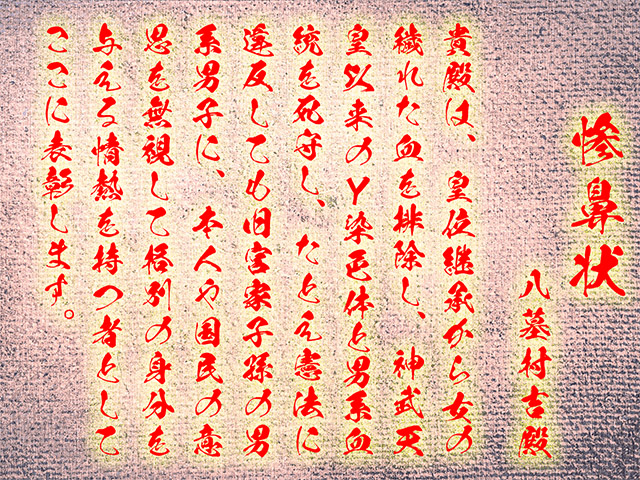 惨鼻状
八墓村吉殿
貴殿は、皇位継承から女の
穢れた血を排除し、神武天
皇以来のY染色体と男系血
統を死守し、たとえ憲法に
違反しても旧宮家子孫の男
系男子に、本人や国民の意
思を無視して格別の身分を
与える情熱を持つ者として
ここに表彰します。